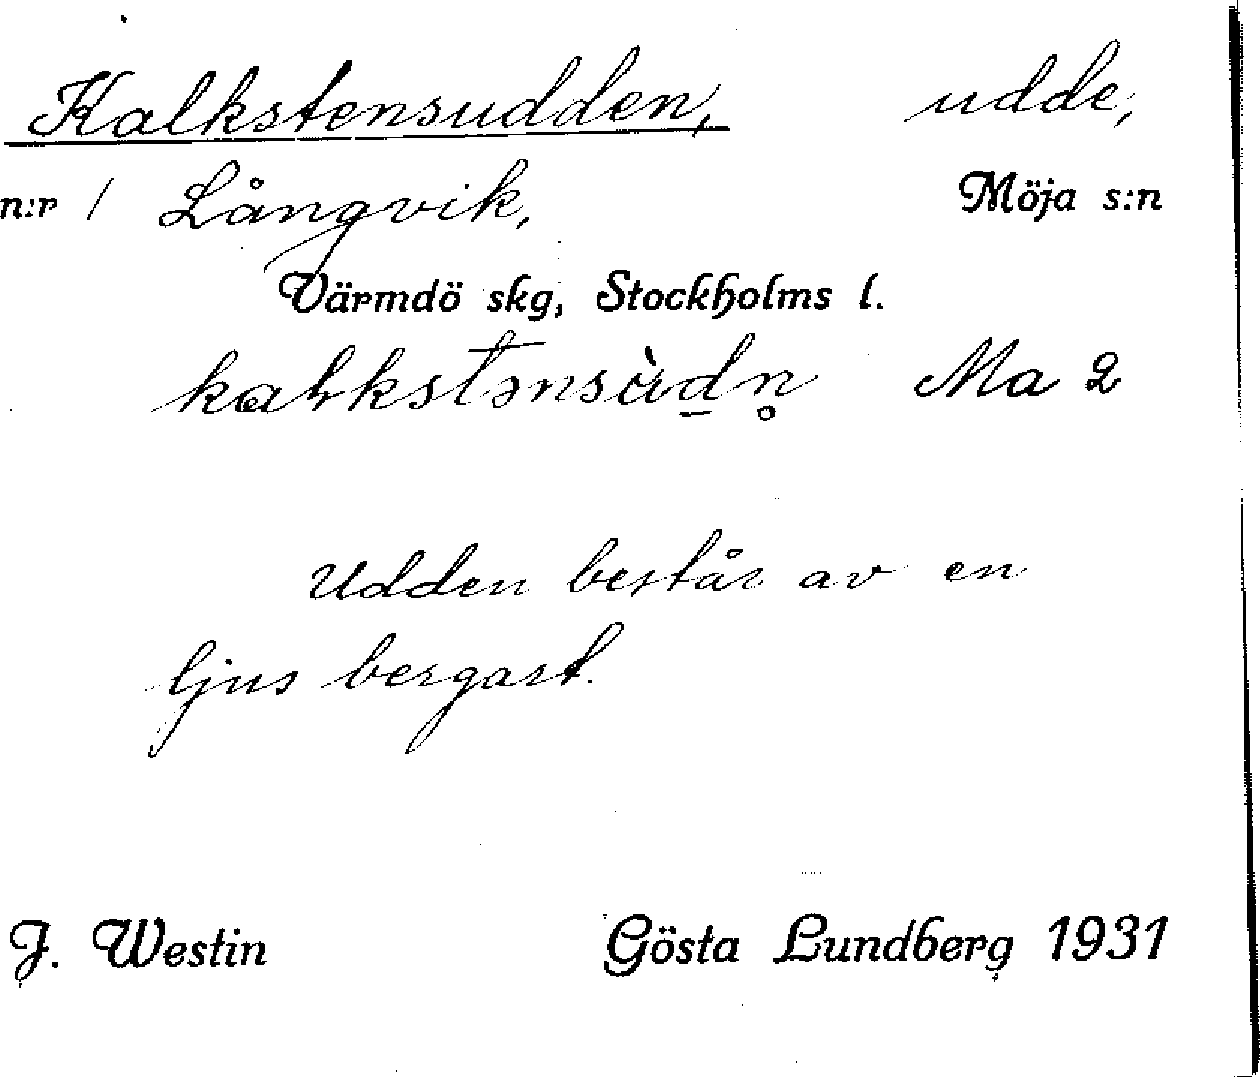 Kalkstensudden, udde,
n:r 1 Långvik, Möja s:n
Värmdö skg, Stockholms l.
Ma 2
Udden består av en
ljus bergart.
J. Westin Gösta Lundberg 1931